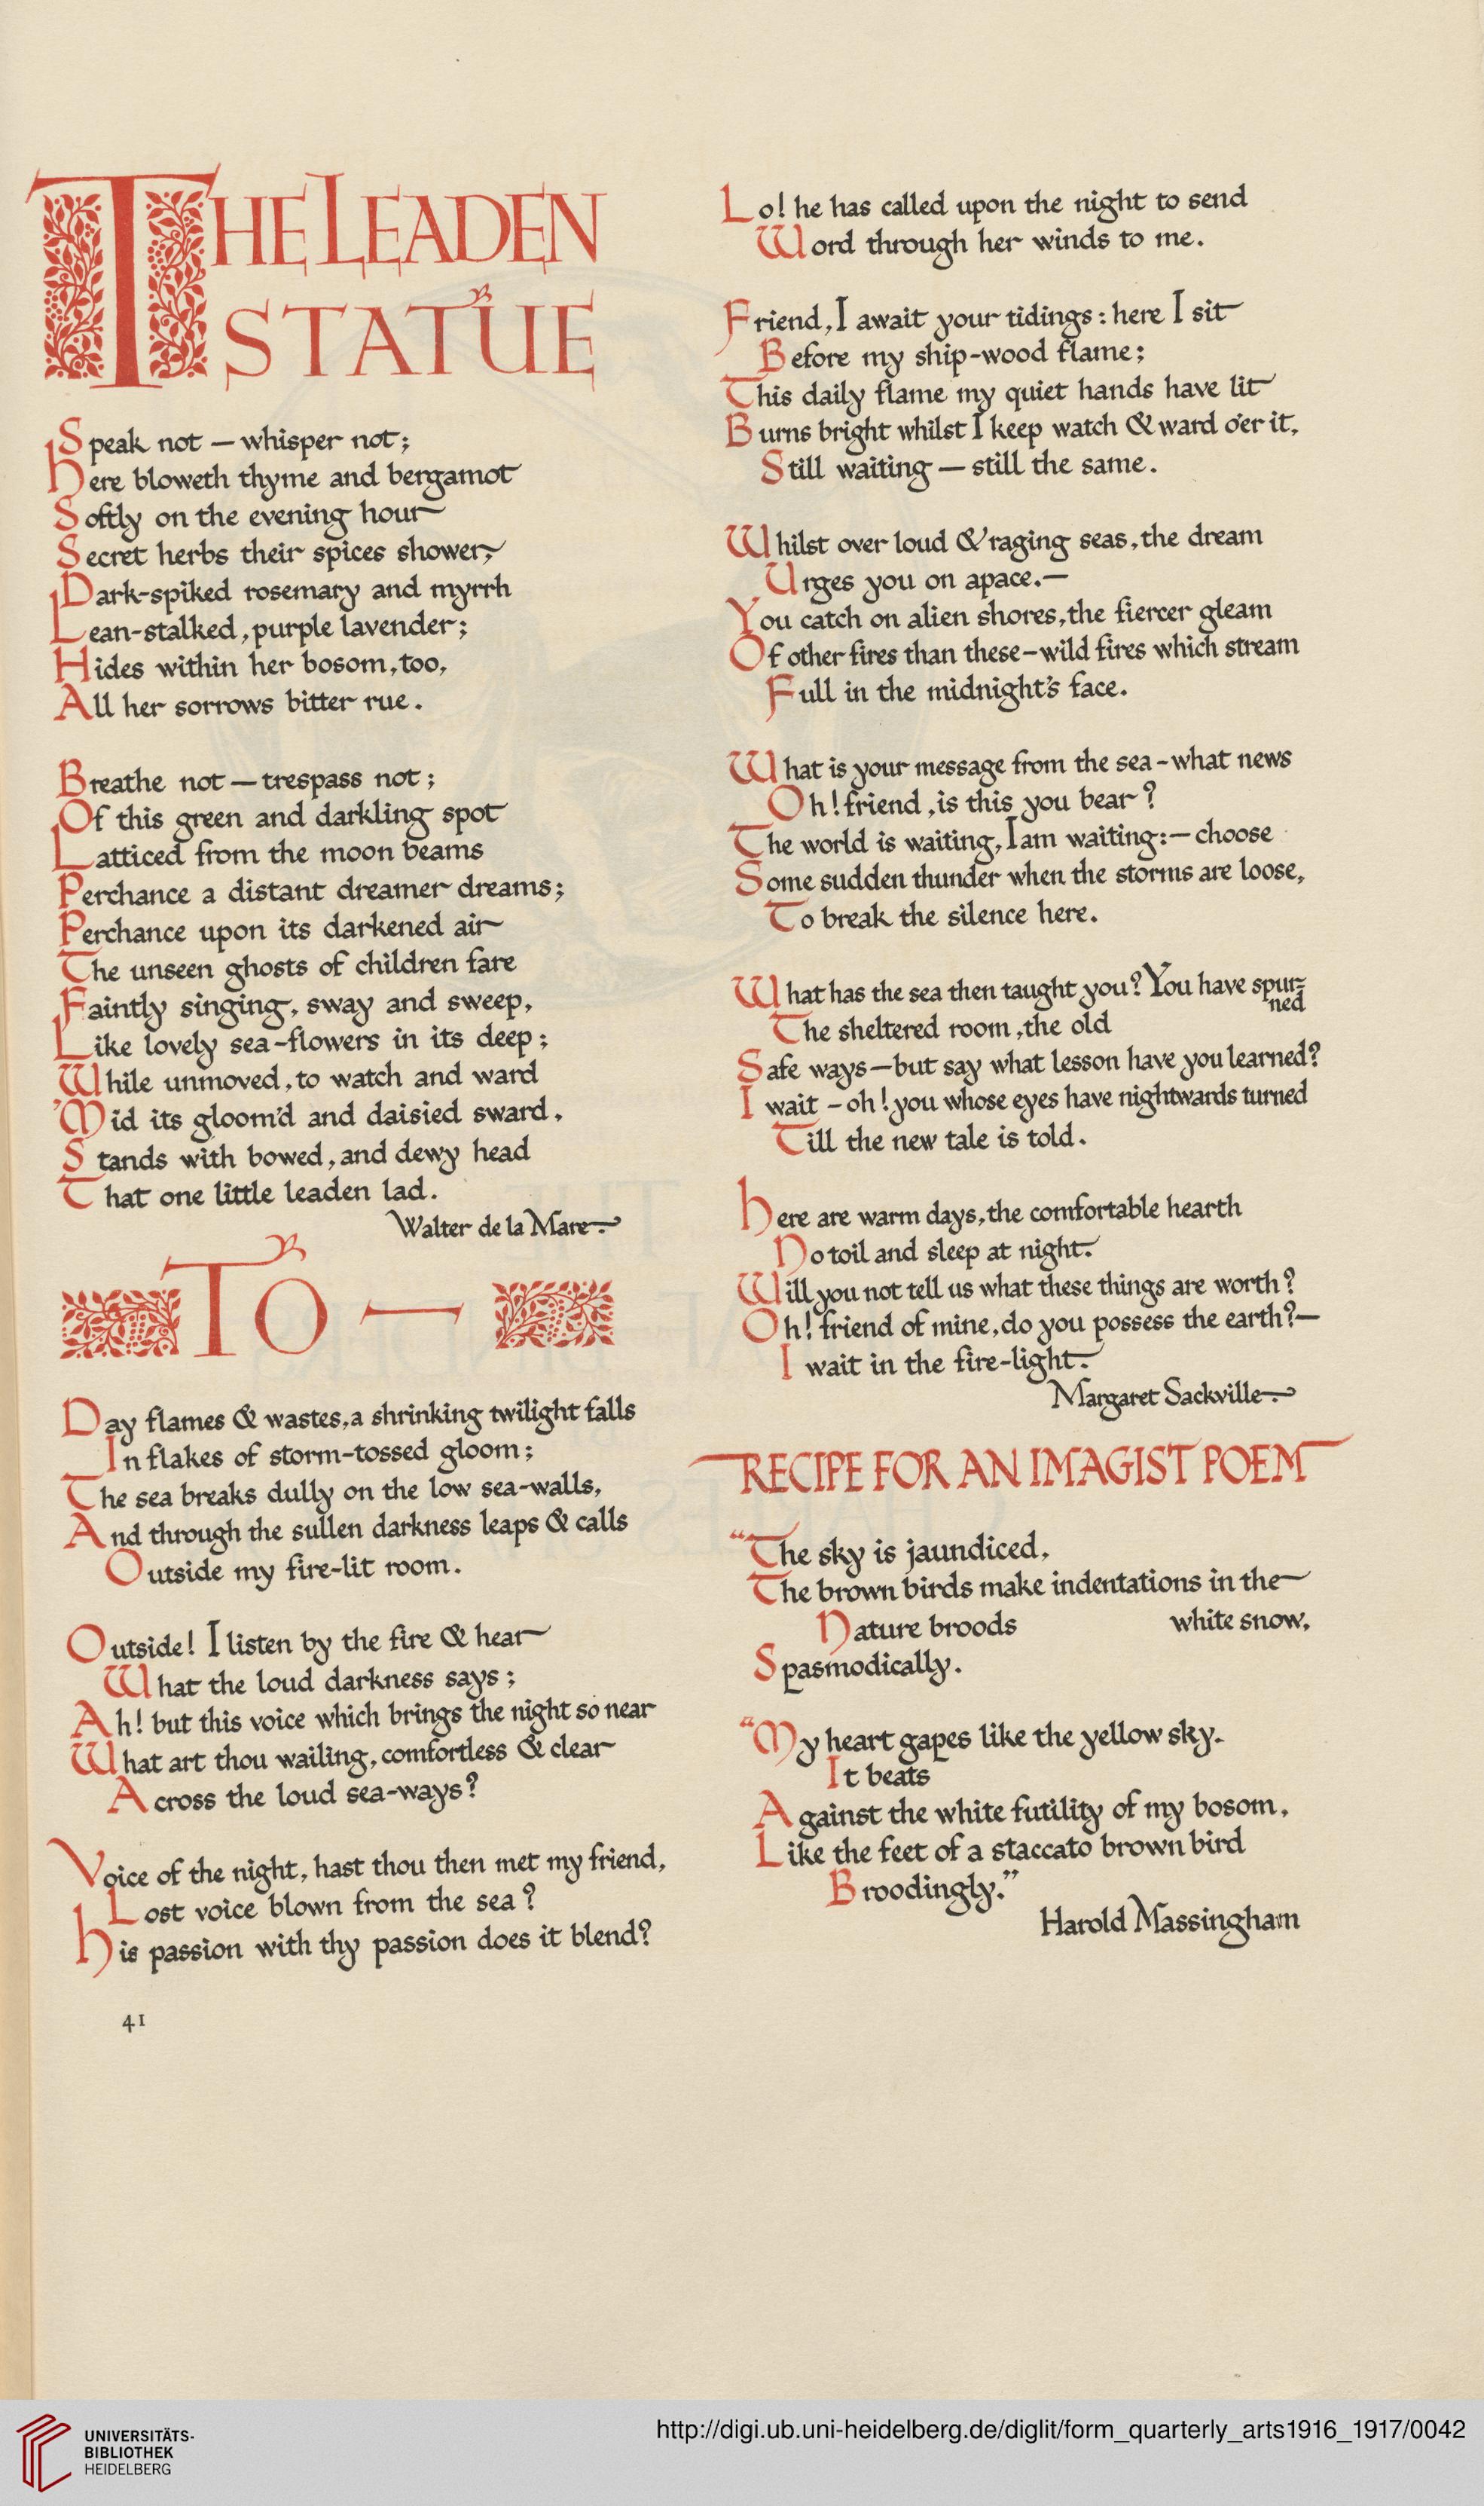 THE LEADEN
STATUE
Speak not – whisper not;
Here bloweth thyme and bergamot
Softly on the evening hour
Secret herbs their spices shower,
Dark-spiked rosemary and myrrh
Lean-stalked, purple lavender;
Hides within her bosom, too,
All her sorrows bitter rue.
Breathe not – trespass not;
Of this green and darkling spot
Latticed from the moon beams
Perchance a distant dreamer dreams;
Perchance upon its darkened air
The unseen ghosts of children fare
Faintly singing, sway and sweep,
Like lovely sea-flowers in its deep;
While unmoved, to watch and ward
'Mid its gloom'd and daisied sward,
Stands with bowed, and dewy head
That one little leaden lad.
Walter de la Mare
TO –
Day flames & wastes, a shrinking twilight falls
In flakes of storm-tossed gloom;
The sea breaks dully on the low sea-walls,
And through the sullen darkness leaps & calls
Outside my fire-lit room.
Outside! I listen by the fire & hear
What the loud darkness says;
Ah! but this voice which brings the night so near
What art thou wailing, comfortless & clear
Across the loud sea-ways?
Voice of the night, hast thou then met my friend,
Lost voice blown from the sea?
His passion with thy passion does it blend?
41
Lo! he has called upon the night to send
Word through her winds to me.
Friend, I await your tidings: here I sit
Before my ship-wood flame;
This daily flame my quiet hands have lit
Burns bright whilst I keep watch & ward o'er it,
Still waiting – still the same.
Whilst over loud & raging seas, the dream
Urges you on apace.–
You catch on alien shores, the fiercer gleam
Of other fires than these – wild fires which stream
Full in the midnight's face.
What is your message from the sea – what news
Oh! friend, is this you bear?
The world is waiting, I am waiting:– choose
Some sudden thunder when the storms are loose,
To break the silence here.
What has the sea then taught you? You have spur-
ned
The sheltered room, the old
Safe ways – but say what lesson have you learned?
I wait – oh! you whose eyes have nightwards turned
Till the new tale is told.
Here are warm days, the comfortable hearth
No toil and sleep at night.
Will you not tell us what these things are worth?
Oh! friend of mine, do you possess the earth?–
I wait in the fire-light.
Margaret Sackville
RECIPE FOR AN IMAGIST POEM
“The sky is jaundiced,
The brown birds make indentations in the
Nature broods white snow,
Spasmodically.
“My heart gapes like the yellow sky.
It beats
Against the white futility of my bosom,
Like the feet of a staccato brown bird
Broodingly.”
Harold Massingham
UNIVERSITÄTS-
BIBLIOTHEK
HEIDELBERG
http://digi.ub.uni-heidelberg.de/diglit/form_quarterly_arts1916_1917/0042